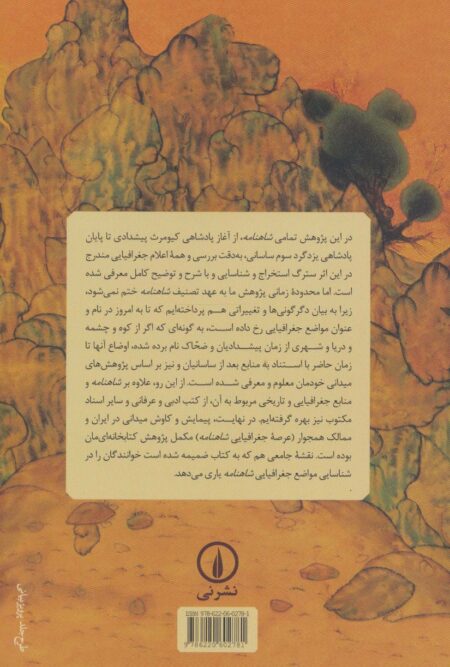 در این پژوهش تمامی شاهنامه، از آغاز پادشاهی کیومرث پیشدادی تا پایان
پادشاهی یزدگرد سوم ساسانی، به‌دقت بررسی و همهٔ اعلام جغرافیایی مندرج
در این اثر سترگ استخراج و شناسایی و با شرح و توضیح کامل معرفی شده
است. اما محدودهٔ زمانی پژوهش ما به عهد تصنیف شاهنامه ختم نمی‌شود،
زیرا به بیان دگرگونی‌ها و تغییراتی هم پرداخته‌ایم که تا به امروز در نام و
عنوان مواضع جغرافیایی رخ داده است، به گونه‌ای که اگر از کوه و چشمه
و دریا و شهری از زمان پیشدادیان و ضحّاک نام برده شده، اوضاع آنها تا
زمان حاضر با استناد به منابع بعد از ساسانیان و نیز بر اساس پژوهش‌های
میدانی خودمان معلوم و معرفی شده است. از این رو، علاوه بر شاهنامه و
منابع جغرافیایی و تاریخی مربوط به آن، از کتب ادبی و عرفانی و سایر اسناد
مکتوب نیز بهره گرفته‌ایم. در نهایت، پیمایش و کاوش میدانی در ایران و
ممالک همجوار (عرصهٔ جغرافیایی شاهنامه) مکمل پژوهش کتابخانه‌ای‌مان
بوده است. نقشهٔ جامعی هم که به کتاب ضمیمه شده است خوانندگان را در
شناسایی مواضع جغرافیایی شاهنامه یاری می‌دهد.
نشرنی
ISBN 978-622-06-0278-1
9 786220 602781
طرح جلد: پرویز بیانی